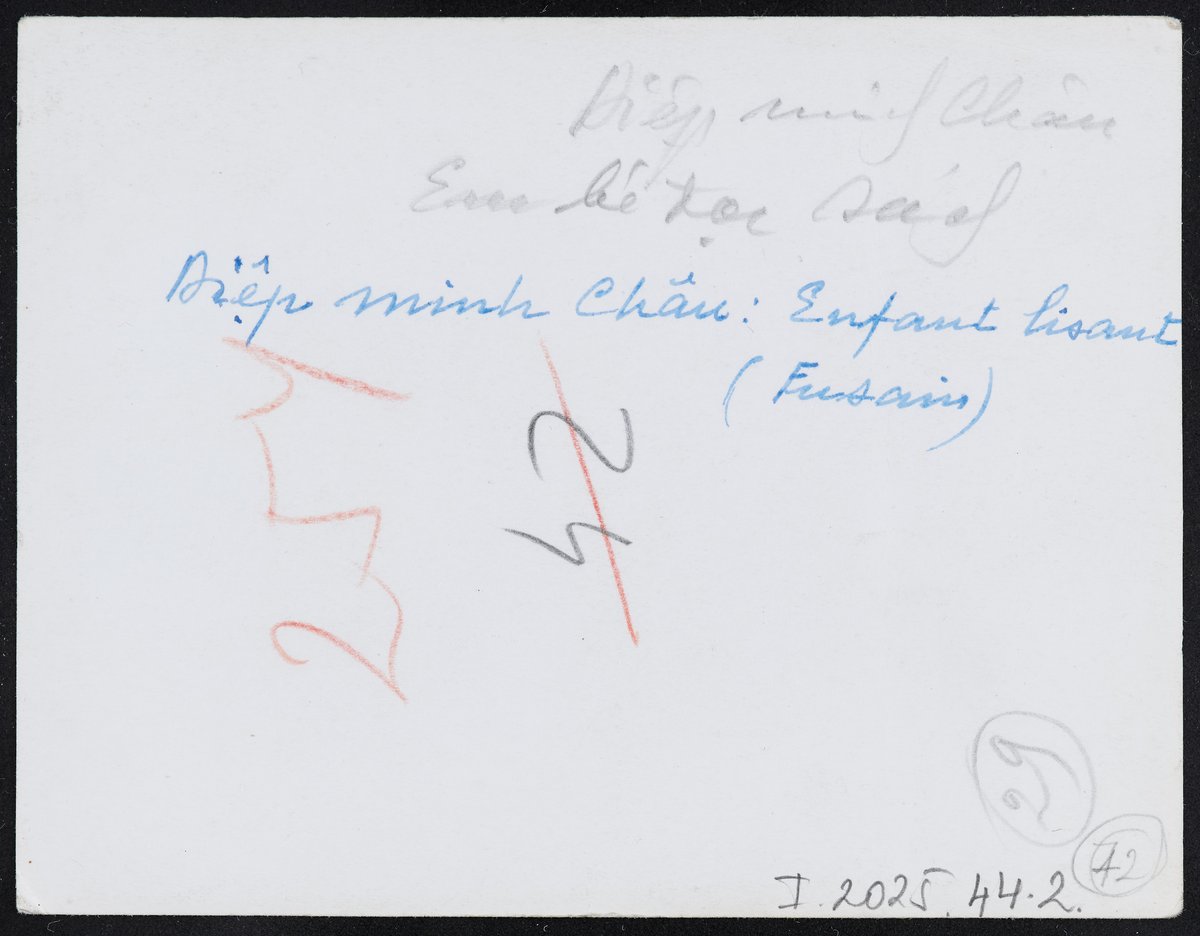 Điệp minh Châu
Em bé đọc sách
Điệp minh Châu: Enfant lisant
(Fusain)
42
42
I. 2025. 44. 2.